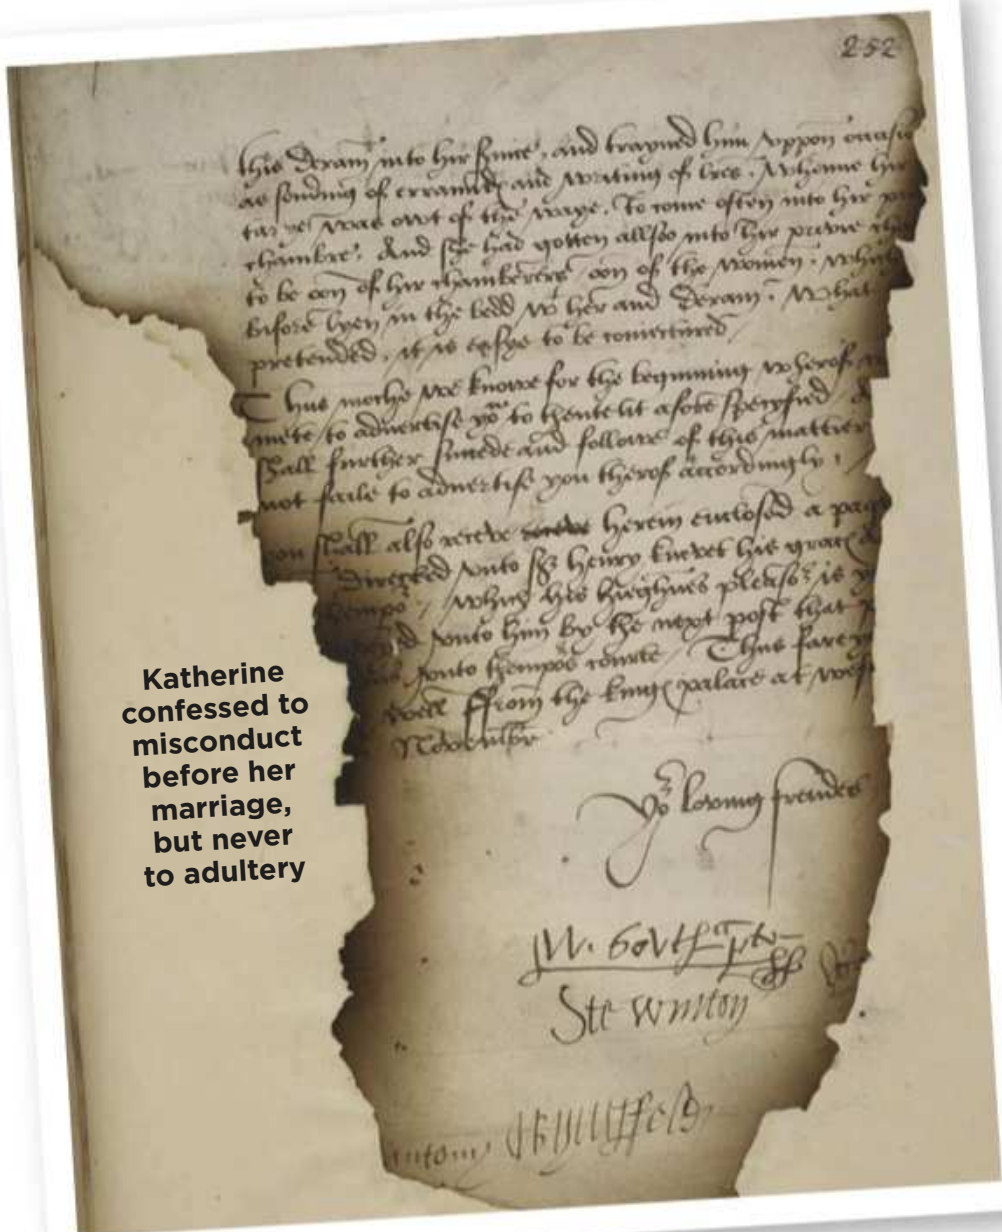 252
this Deram into hir svice, and trayned him vppon occasi
as sending of errandes and writing of lres, Whenne hir
was owt of the waye, To come often into hir
chambre. And she had gotten allso into hir privie
to be oon of hir chamberers oon of the women, which
bifore lyen in the bedd wt her and Deram. What
pretended, it is easye to be coniectured
Thus moche we knowe for the beginning wherof
mete to advertise you to thentent afore specyfied
shall further succede and followe of this mattier
not faile to advertise you therof accordingly,
you shall also receve herein enclosed a
directed vnto Sr Henry knevet his graces
which his hieghnes pleasr is
vnto him by the next post that
vnto thempors courte Thus fare
well ffrom the kinges palace at
Novembr
Katherine
confessed to
misconduct
before her
marriage,
but never
to adultery
Yor loving frendes
Ste Winton